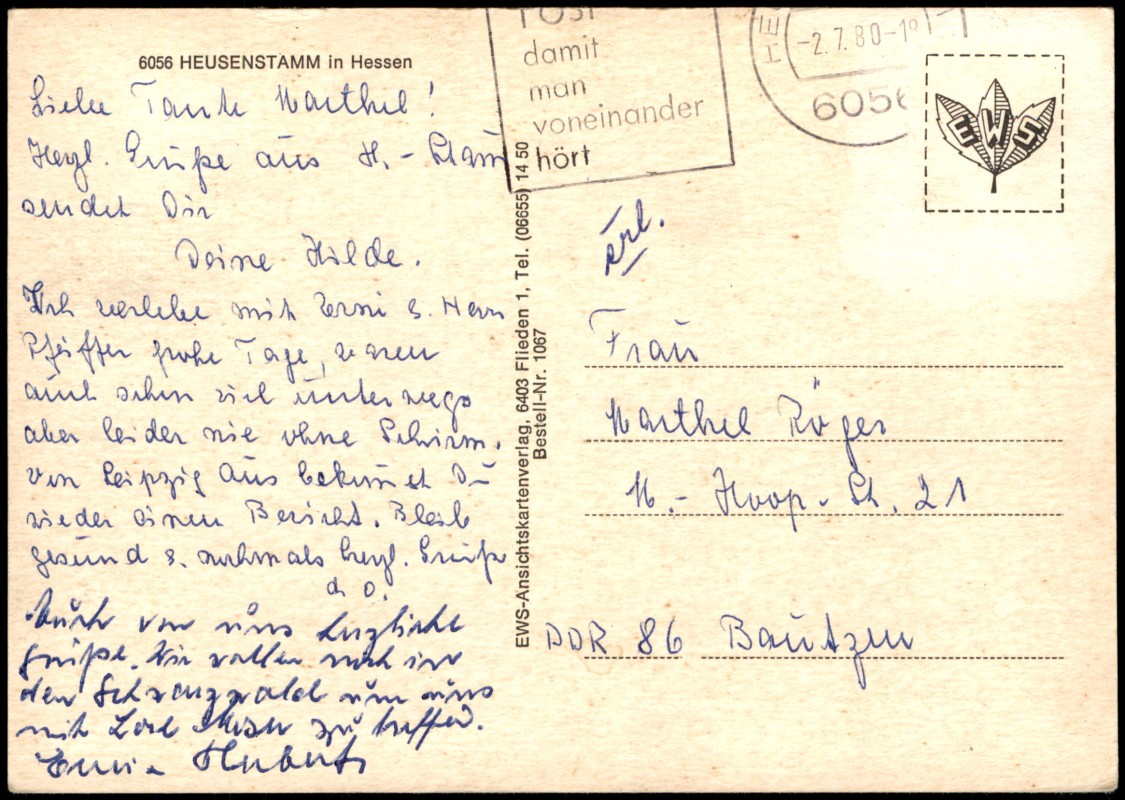 6056 HEUSENSTAMM in Hessen
Liebe Tante Marthel!
Herzl. Grüße aus H.-Stamm
sendet Dir
Deine Hilde.
Ich verlebe mit Erni u. Herrn
Pfeiffer frohe Tage, waren
auch schon viel unterwegs
aber leider nie ohne Schirm.
Von Leipzig aus bekommst Du
wieder einen Bericht. Bleib
gesund u. nochmals herzl. Grüße
d. O.
Auch von uns herzliche
Grüße. Wir wollen noch in
den Schwarzwald um uns
mit zu treffen.
Huberts
EWS-Ansichtskartenverlag, 6403 Flieden 1, Tel. (06655) 14 50
Bestell-Nr. 1067
POST
damit
man
voneinander
hört
HE
-2.7.80-19
6056
EWS
erl.
Frau
Marthel Röger
M.-Hoop-St. 21
DDR 86 Bautzen